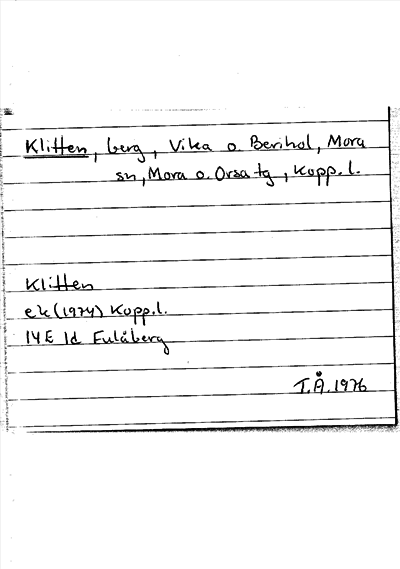 Klitten, berg, Vika o. Berihol, Mora
sn, Mora o. Orsa tg, Kopp. l.
Klitten
ek (1974) Kopp. l.
14E 1d Eulåberg
T.Å. 1976